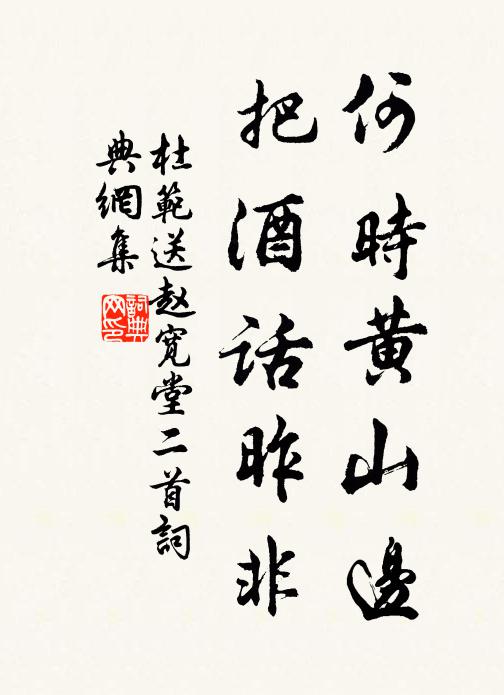 何時黄山邊
把酒話昨非
杜範送赵寬堂二首詞
典網集
詞典
网印